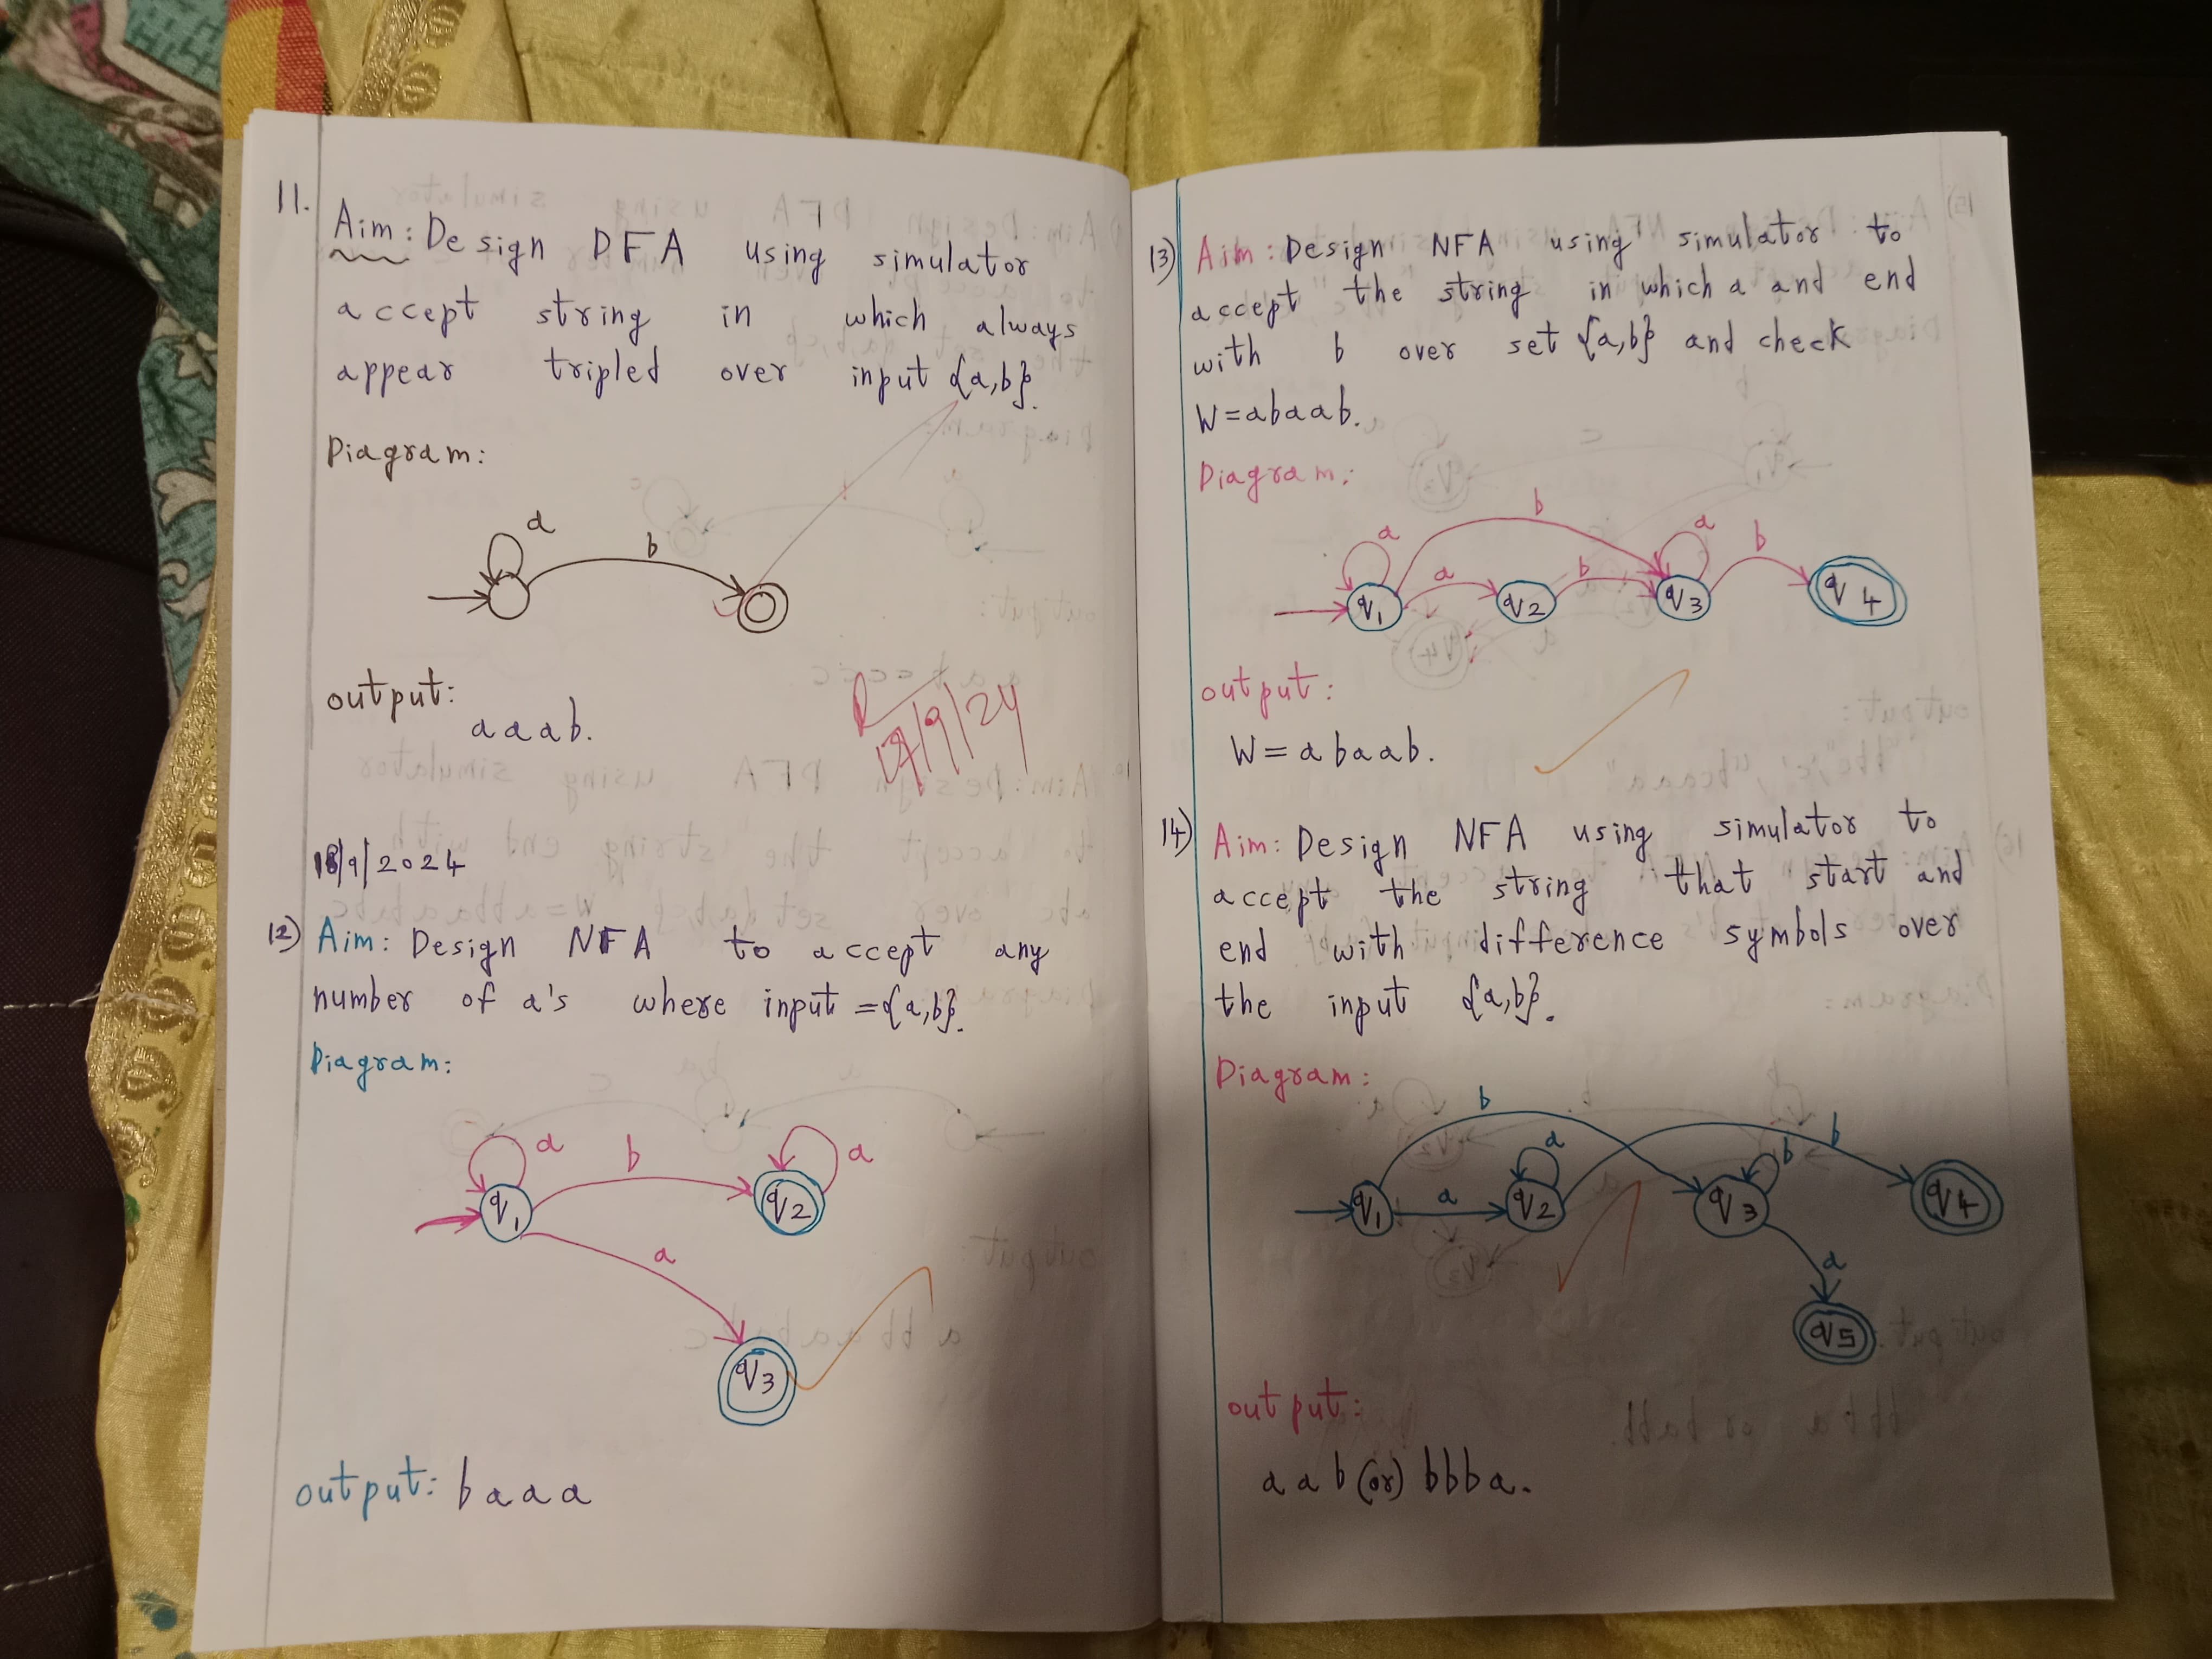 11.
Aim: Design DFA using simulator
accept string in which always
appear tripled over input {a,b}.
Diagram:
a
b
output:
aaab.
17/9/24
18/9/2024
12) Aim: Design NFA to accept any
number of a's where input = {a,b}.
Diagram:
a b a
q1 q2
a
q3
output: baaa
13) Aim: Design NFA using simulator to
accept the string in which a and end
with b over set {a,b} and check
W=abaab.
Diagram:
b
a a b
a b
q1 q2 q3 q4
output:
W = abaab.
14) Aim: Design NFA using simulator to
accept the string that start and
end with difference symbols over
the input {a,b}.
Diagram:
b
a b b
q1 a q2 q3 q4
a
q5
output:
aab (or) bbba.